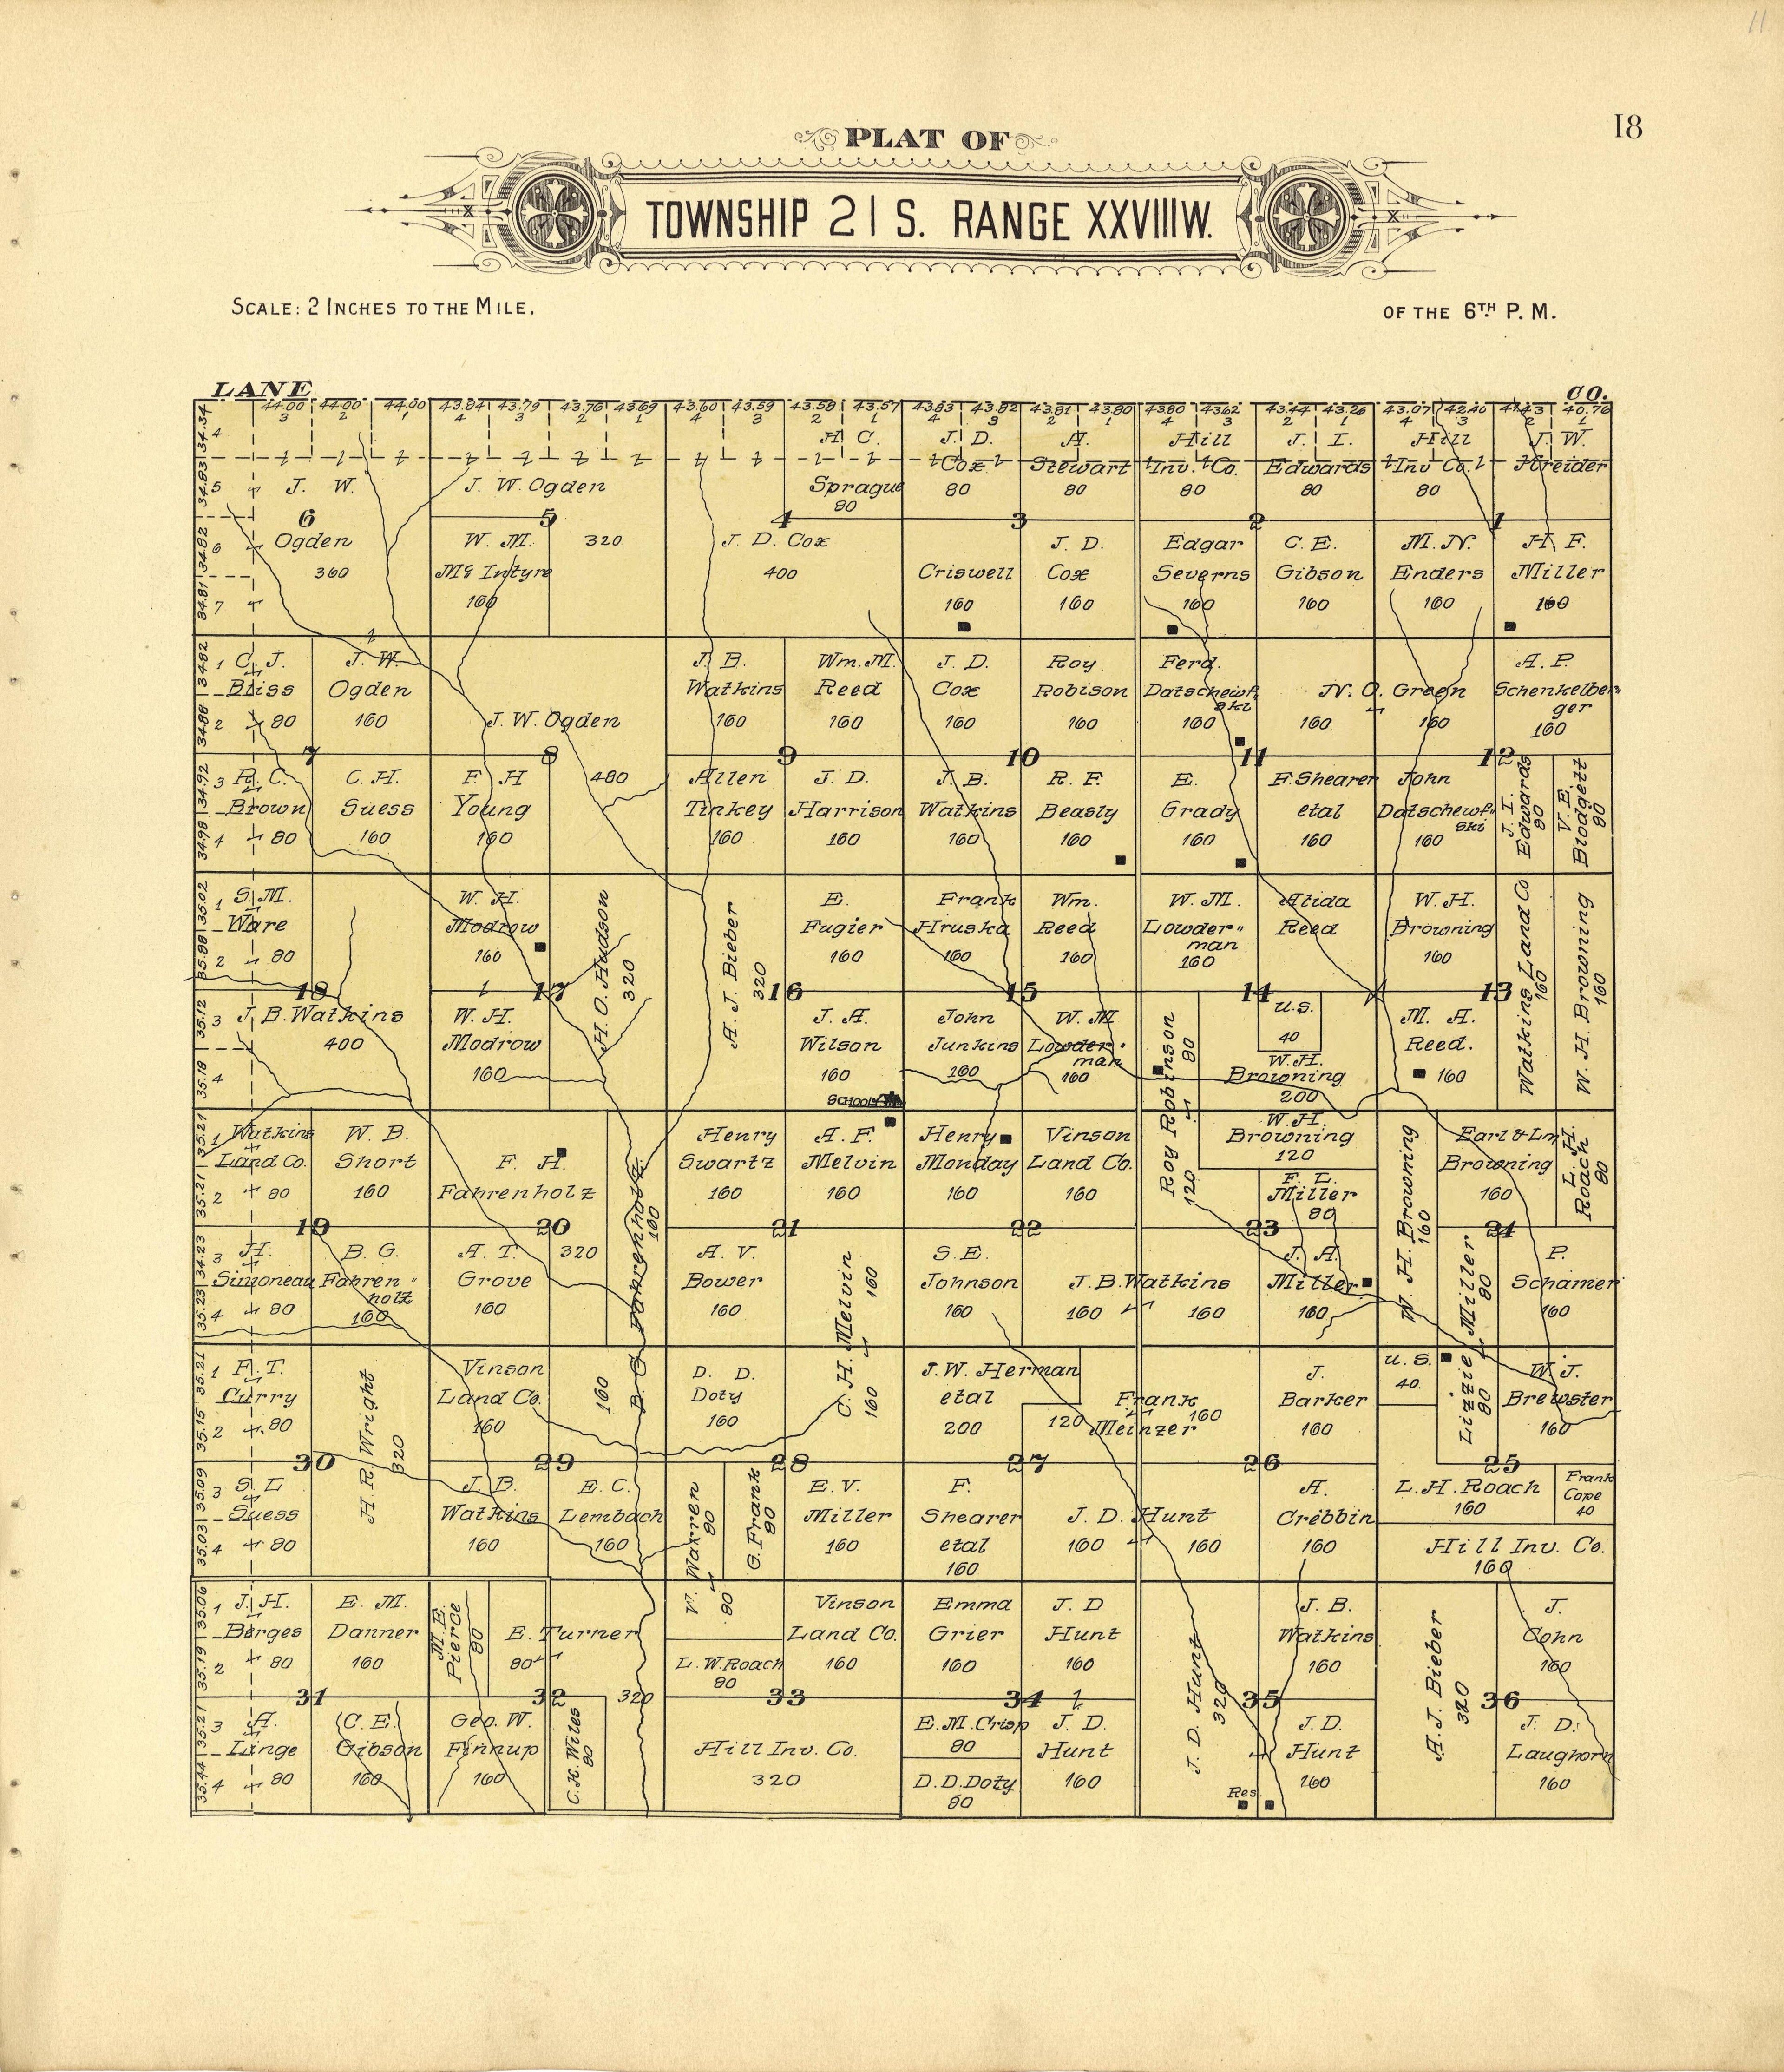 11
18
PLAT OF
TOWNSHIP 21 S. RANGE XXVIII W.
SCALE: 2 INCHES TO THE MILE.
OF THE 6TH P. M.
LANE
CO.
44.00 44.00 44.00 43.84 43.79 43.76 43.69 43.60 43.59 43.58 43.57 43.83 43.82 43.81 43.80 43.80 43.62 43.44 43.26 43.07 42.40 40.76
3 2 1 4 3 2 1 4 3 2 1 4 3 2 1 4 3 2 1 4 3 2 1
34.34
4
34.83
5
34.82
6
34.81
7
J. W.
6
Ogden
360
J. W. Ogden
5
320
W. M.
Mc Intyre
160
H. C.
Sprague
80
4
J. D. Cox
400
J. D.
Cox
80
A.
Stewart
80
3
Criswell
160
J. D.
Cox
160
Hill
Inv. Co.
80
J. I.
Edwards
80
2
Edgar
Severns
160
C. E.
Gibson
160
Hill
Inv Co.
80
J. W.
Kreider
1
M. N.
Enders
160
H. F.
Miller
160
34.82
1
34.88
2
34.92
3
34.98
4
C. J.
Bliss
80
J. W.
Ogden
160
7
R. C.
Brown
80
C. H.
Suess
160
J. W. Ogden
8
480
F H
Young
160
J. B.
Watkins
160
Wm. M.
Reed
160
9
Allen
Tinkey
160
J. D.
Harrison
160
J. D.
Cox
160
Roy
Robison
160
10
J. B.
Watkins
160
R. F.
Beasly
160
Ferd.
Datschewf
ski
160
N. O. Green
160
160
11
E.
Grady
160
F. Shearer
etal
160
A. P.
Schenkelber
ger
160
12
John
Datschewf
ski
160
J. I.
Edwards
80
V. E.
Blodgett
80
35.02
1
35.88
2
35.12
3
35.18
4
S. M.
Ware
80
18
J. B. Watkins
400
W. H.
Modrow
160
17
W. H.
Modrow
160
H. O. Hudson
320
A. J. Bieber
320
16
E.
Fugier
160
J. A.
Wilson
160
SCHOOL
Frank
Hruska
160
Wm.
Reed
160
15
John
Junkins
160
W. M
Lowder
man
160
W. M.
Lowder
man
160
Alida
Reed
160
14
Roy Robinson
80
120
U.S.
40
W. H.
Browning
200
W. H.
Browning
160
13
M. A.
Reed.
160
Watkins Land Co
160
W. H. Browning
160
35.21
1
35.21
2
34.23
3
35.23
4
Watkins
Land Co.
80
W. B.
Short
160
19
H.
Simoneau
80
B. G.
Fahren
holz
160
F. H.
Fahrenholz
20
320
A. T.
Grove
160
B. G Fahrenholz
160
160
Henry
Swartz
160
A. F.
Melvin
160
21
A. V.
Bower
160
C. H. Melvin
160
160
Henry
Monday
160
Vinson
Land Co.
160
22
S. E.
Johnson
160
J. B. Watkins
160
160
W. H.
Browning
120
F. L.
Miller
80
23
J. A.
Miller
160
W. H. Browning
160
Earl & Lm
Browning
160
L. H.
Roach
80
24
Lizzie Miller
80
80
P.
Schamer
160
35.21
1
35.15
2
35.09
3
35.03
4
F. T.
Curry
80
30
H. R. Wright
320
S. L
Suess
80
Vinson
Land Co.
160
29
J. B.
Watkins
160
E. C.
Lembach
160
D. D.
Doty
160
28
V. Warren
80
80
G. Frank
80
E. V.
Miller
160
J. W. Herman
etal
200
Frank
Meinzer
120
160
27
F.
Shearer
etal
160
J. D. Hunt
160
160
J.
Barker
160
26
A.
Cribbin
160
U. S.
40.
W. J.
Brewster
160
25
L. H. Roach
160
Frank
Cope
40
Hill Inv. Co.
160
35.06
1
35.19
2
35.21
3
35.44
4
J. H.
Borges
80
E. M.
Danner
160
31
A.
Linge
80
C. E.
Gibson
160
M. E.
Pierce
80
E. Turner
80
32
320
Geo. W.
Finnup
160
C. K. Wiles
80
L. W. Roach
80
Vinson
Land Co.
160
33
Hill Inv. Co.
320
Emma
Grier
160
J. D
Hunt
160
34
E. M. Crisp
80
D. D. Doty
80
J. D.
Hunt
160
J. D. Hunt
320
J. B.
Watkins
160
35
J. D.
Hunt
160
Res.
A. J. Bieber
320
J.
Cohn
160
36
J. D.
Laughorn
160